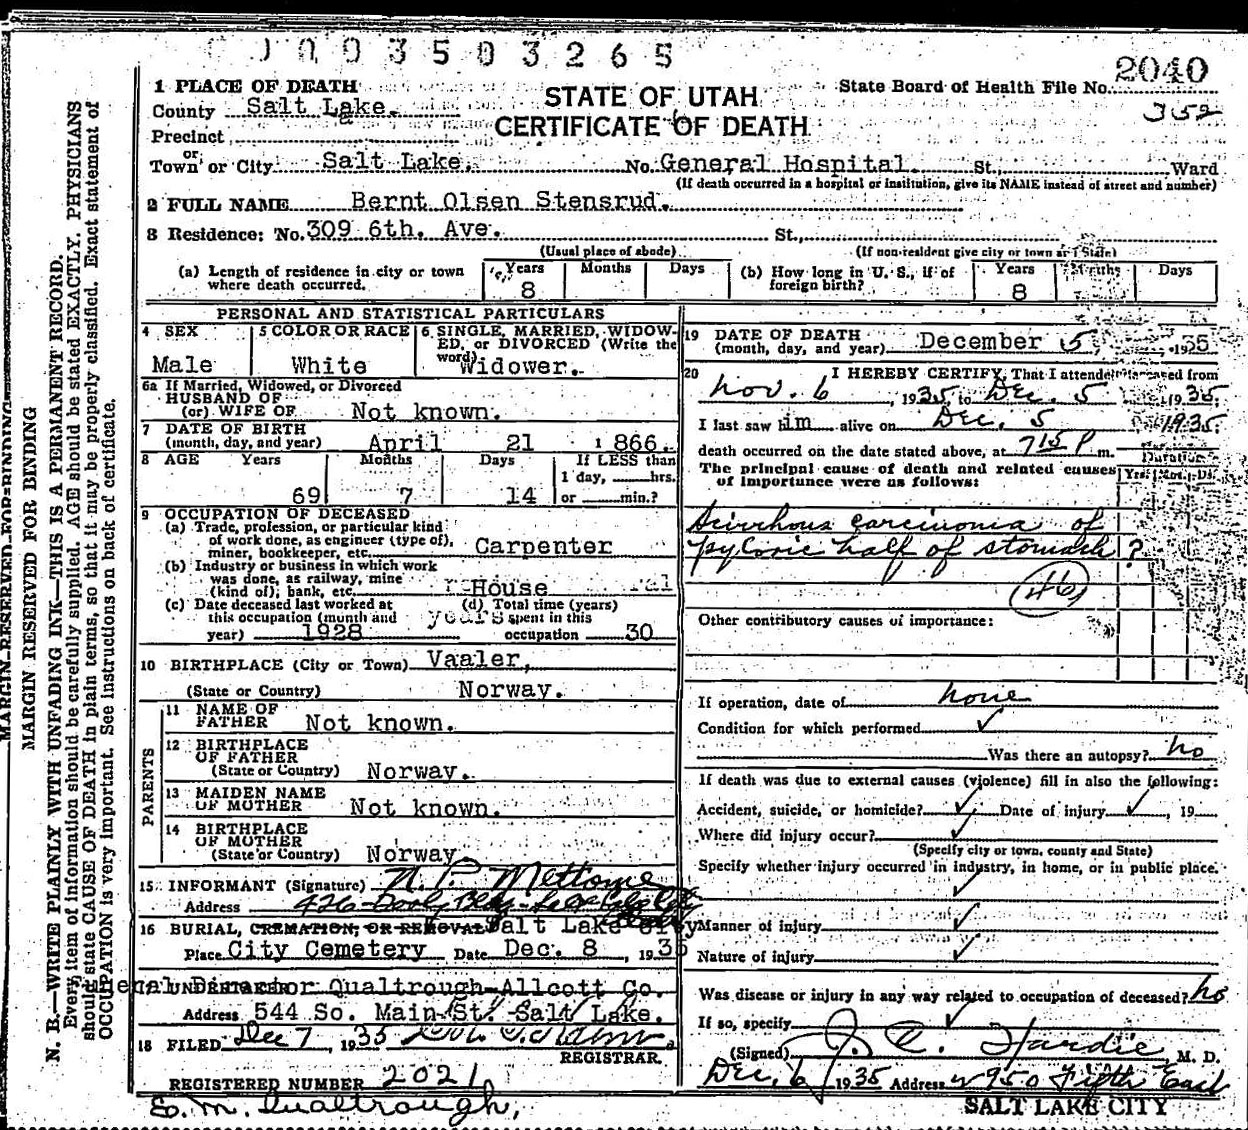 0093503265
2040
1 PLACE OF DEATH
State Board of Health File No.
352
County Salt Lake.
STATE OF UTAH
CERTIFICATE OF DEATH
Precinct
Town or City Salt Lake. No. General Hospital. St., Ward
(If death occurred in a hospital or institution, give its NAME instead of street and number)
2 FULL NAME Bernt Olsen Stensrud.
3 Residence: No. 309 6th. Ave. St.,
(Usual place of abode) (If non-resident give city or town and State)
(a) Length of residence in city or town where death occurred. Years 8 Months Days
(b) How long in U. S., if of foreign birth? Years 8 Months Days
PERSONAL AND STATISTICAL PARTICULARS
4 SEX Male
5 COLOR OR RACE White
6 SINGLE, MARRIED, WIDOWED, or DIVORCED (Write the word) Widower.
6a If Married, Widowed, or Divorced
HUSBAND OF
(or) WIFE OF Not known.
7 DATE OF BIRTH
(month, day, and year) April 21 1866.
8 AGE Years 69 Months 7 Days 14 If LESS than 1 day, hrs. or min.?
9 OCCUPATION OF DECEASED
(a) Trade, profession, or particular kind of work done, as engineer (type of), miner, bookkeeper, etc. Carpenter
(b) Industry or business in which work was done, as railway, mine (kind of); bank, etc. House
(c) Date deceased last worked at this occupation (month and year) 1928
(d) Total time (years) spent in this occupation 30 years
10 BIRTHPLACE (City or Town) Vaaler,
(State or Country) Norway.
PARENTS
11 NAME OF FATHER Not known.
12 BIRTHPLACE OF FATHER (State or Country) Norway.
13 MAIDEN NAME OF MOTHER Not known.
14 BIRTHPLACE OF MOTHER (State or Country) Norway.
15 INFORMANT (Signature) N. P. Mettome
Address 426 Dooly Bldg
16 BURIAL, CREMATION, OR REMOVAL Salt Lake City
Place City Cemetery Date Dec. 8, 1935
17 UNDERTAKER Director Qualtrough-Allcott Co.
Address 544 So. Main St. Salt Lake.
18 FILED Dec 7 1935
REGISTRAR
REGISTERED NUMBER 2021
E. M. Qualtrough,
19 DATE OF DEATH
(month, day, and year) December 5, 1935
20 I HEREBY CERTIFY, That I attended deceased from
Nov. 6, 1935, to Dec. 5 1935.
I last saw him alive on Dec. 5 1935.
death occurred on the date stated above, at 715 P m.
The principal cause of death and related causes of importance were as follows:
Duration
Yrs. Mos. Ds.
Scirrhous carcinoma of
pyloric half of stomach?
46
Other contributory causes of importance:
If operation, date of none
Condition for which performed
Was there an autopsy? no
If death was due to external causes (violence) fill in also the following:
Accident, suicide, or homicide? Date of injury, 19
Where did injury occur?
(Specify city or town, county and State)
Specify whether injury occurred in industry, in home, or in public place.
Manner of injury
Nature of injury
Was disease or injury in any way related to occupation of deceased? no
If so, specify
(Signed) J. C. Hardie M. D.
Dec. 6 1935 Address 950 Fifth East
SALT LAKE CITY
MARGIN RESERVED FOR BINDING
MARGIN RESERVED FOR BINDING
N. B.—WRITE PLAINLY WITH UNFADING INK—THIS IS A PERMANENT RECORD.
Every item of information should be carefully supplied. AGE should be stated EXACTLY. PHYSICIANS
should state CAUSE OF DEATH in plain terms, so that it may be properly classified. Exact statement of
OCCUPATION is very important. See instructions on back of certificate.